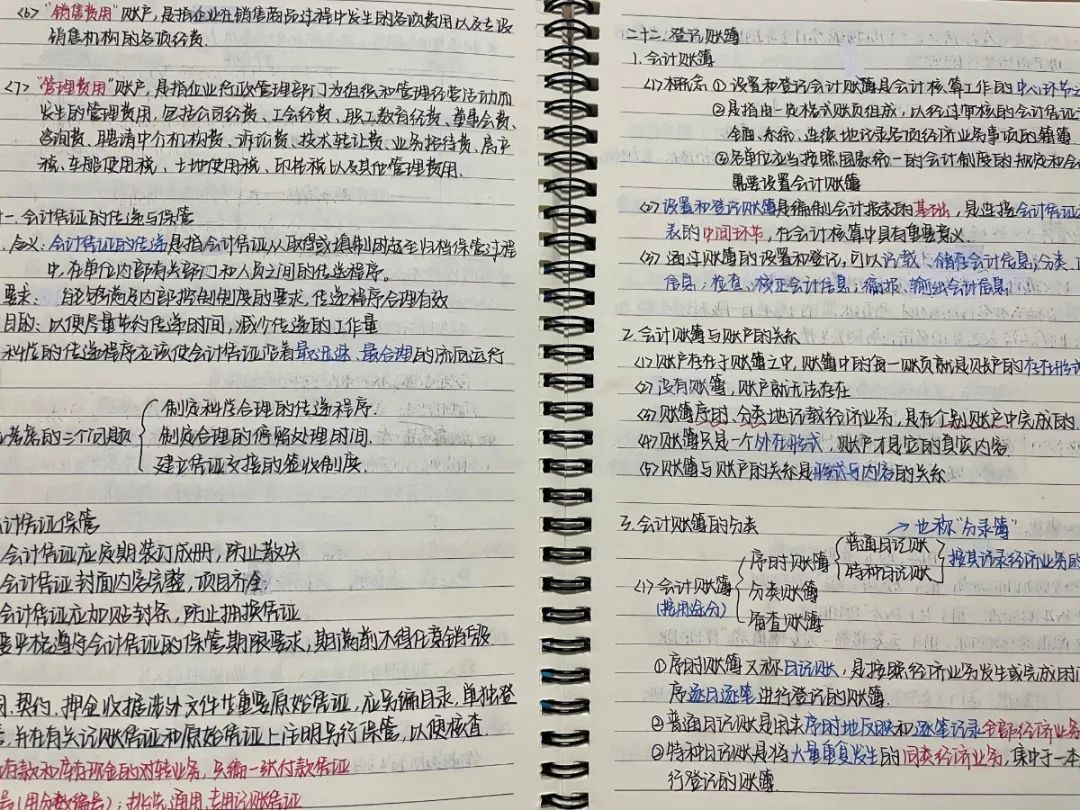 <6> "销售费用"账户,是指企业在销售商品过程中发生的各项费用以及专设
销售机构的各项经费.
<7> "管理费用"账户,是指企业行政管理部门为组织和管理经营活动而
发生的管理费用,包括公司经费、工会经费、职工教育经费、董事会费、
咨询费、聘请中介机构费、诉讼费、技术转让费、业务招待费、房产
税、车船使用税、土地使用税、印花税以及其他管理费用.
一、会计凭证的传递与保管
含义:会计凭证的传递是指会计凭证从取得或填制时起至归档保管过程
中,在单位内部有关部门和人员之间的传递程序。
要求: 能够满足内部控制制度的要求,传递程序合理有效
目的:以便尽量节约传递时间,减少传递的工作量
科学的传递程序应该使会计凭证沿着最迅速、最合理的流向运行
考虑的三个问题
制定科学合理的传递程序.
制定合理的停留处理时间.
建立凭证交接的签收制度.
计凭证保管
会计凭证应定期装订成册,防止散失
会计凭证封面内容完整,项目齐全
会计凭证应加贴封条,防止抽换凭证
严格遵守会计凭证的保管期限要求,期满前不得任意销毁
契约、押金收据涉外文件等重要原始凭证,应另编目录,单独登
,并在有关记账凭证和原始凭证上注明另行保管,以便核查.
存款和库存现金的对转业务,只编一张付款凭证
号(用分数编号);
通用、专用记账凭证
二十二、登记账簿
1.会计账簿
<1>概念①设置和登记会计账簿是会计核算工作的中心环节
②是指由一定格式账页组成,以经过审核的会计凭证
全面、系统、连续地记录各项经济业务事项的簿籍
③各单位应当按照国家统一的会计制度的规定和会
需要设置会计账簿
<2>设置和登记账簿是编制会计报表的基础,是连接会计凭证
表的中间环节,在会计核算中具有重要意义.
<3>通过账簿的设置和登记,可以记载、储存会计信息;分类、
信息;检查、校正会计信息;编报、输出会计信息
2.会计账簿与账户的关系
<1>账户存在于账簿之中,账簿中的每一账页就是账户的存在形式
<2>没有账簿,账户就无法存在
<3>账簿序时、分类地记载经济业务,是在个别账户中完成的.
<4>账簿只是一个外在形式,账户才是它的真实内容
<5>账簿与账户的关系是形式与内容的关系.
3.会计账簿的分类
→也称"分录簿"
<1>会计账簿
(按用途分)
序时账簿
普通日记账
特种日记账
按其记录经济业务的
分类账簿
备查账簿
①序时账簿又称日记账,是按照经济业务发生或完成时间
序逐日逐笔进行登记的账簿.
②普通日记账是用来序时地反映和逐笔记录全部经济业务
③特种日记账是将大量重复发生的同类经济业务,集中于一本
行登记的账簿.